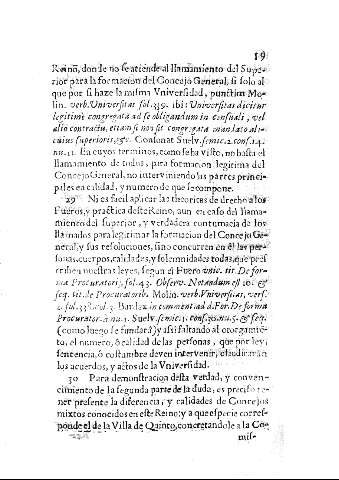 19
Reino, donde no se atiende al llamamiento del Supe-
rior para la formacion del Concejo General, si solo al
que por si haze la misma Vniversidad, punctim Mo-
lin. verb. Vniversitas fol. 339. ibi: Vniversitas dicitur
legitimè congregata ad se obligandum in censuali, vel
alio contractu, etiam si non sit congregata mandato ali-
cuius superioris, &c. Consonat Suelv. semic. 2. cons. 24.
nu. 11. En cuyos terminos, como se ha visto, no basta el
llamamiento de todos, para formacion legitima del
Concejo General, no interviniendo las partes princi-
pales en calidad, y numero de que se compone.
29 Ni es facil aplicar las theoricas de drecho a los
Fueros, y practica deste Reino, aun en caso del llama-
miento del superior, y verdadera contumacia de los
llamados para legitimar la formacion del Concejo Ge-
neral, y sus resoluciones, sino concurren en èl las per-
sonas, cuerpos, calidades, y solemnidades todas, que pres-
criben nuestras leyes, segun el Fuero vnic. tit. De for-
ma Procuratorij, fol. 43. Observ. Notandum est 16. &
seq. tit. de Procuratorib. Molin. verb. Vniversitas, vers.
2. fol. 338. col. 3. in comment. ad For. De forma
Procurator. à nu. 1. Suelv. semic. 1. cons. 30. nu. 5. & seq.
(como luego se fundarà) y assi faltando al otorgamiẽ-
to, el numero, ò calidad de las personas, que por ley,
sentencia, ò costumbre deven intervenir, claudicaràn
los acuerdos, y actos de la Vniversidad.
30 Para demonstracion desta verdad, y conven-
cimiento de la segunda parte de la duda, es preciso te-
ner presente la diferencia, y calidades de Concejos
mixtos conocidos en este Reino, y a que especie corres-
ponde el de la Villa de Quinto, concretandole a la Co-
mis-